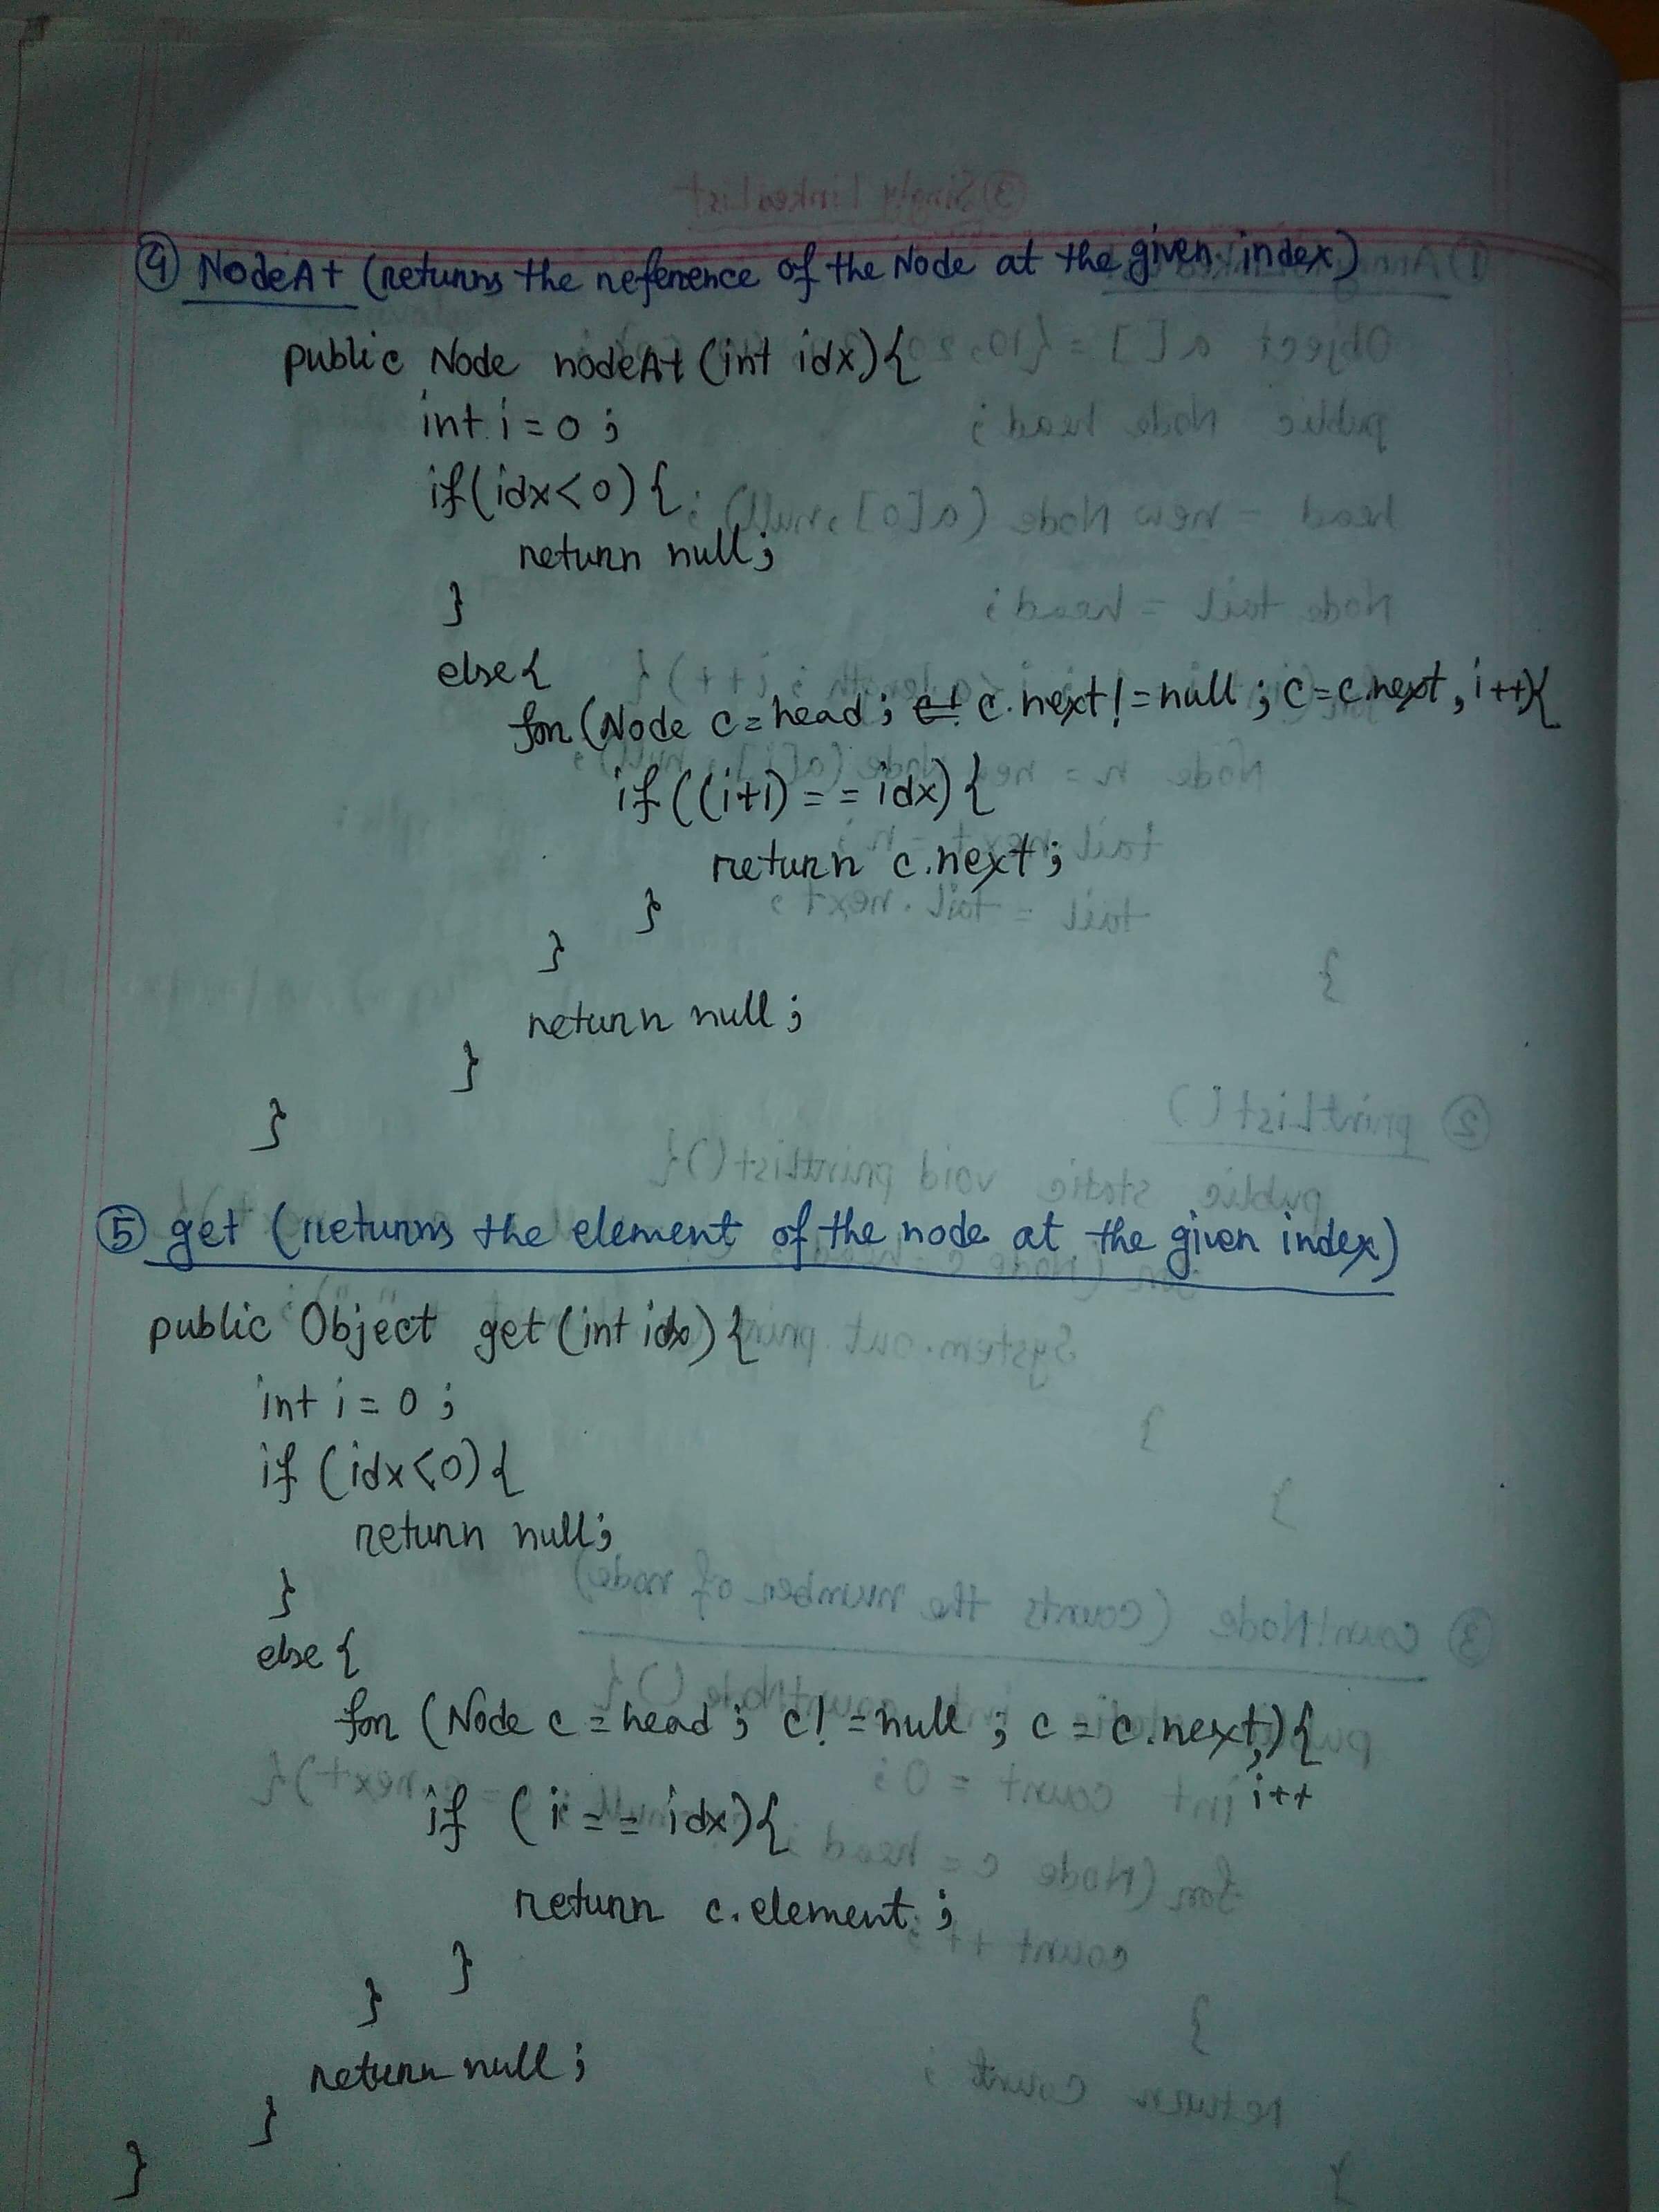 ④ NodeAt (returns the reference of the Node at the given index)
public Node nodeAt (int idx){
int i = 0 ;
if(idx<0) {
return null;
}
else{
for (Node c = head ; c! c.next != null ; c = c.next, i++){
if ((i+1) = = idx) {
return c.next ;
}
}
return null ;
}
}
⑤ get (returns the element of the node at the given index)
public Object get (int idx) {
int i = 0 ;
if (idx<0) {
return null;
}
else {
for (Node c = head ; c! = null ; c = c.next,) {
i++
if ( i = = idx) {
return c.element ;
}
}
return null ;
}
}